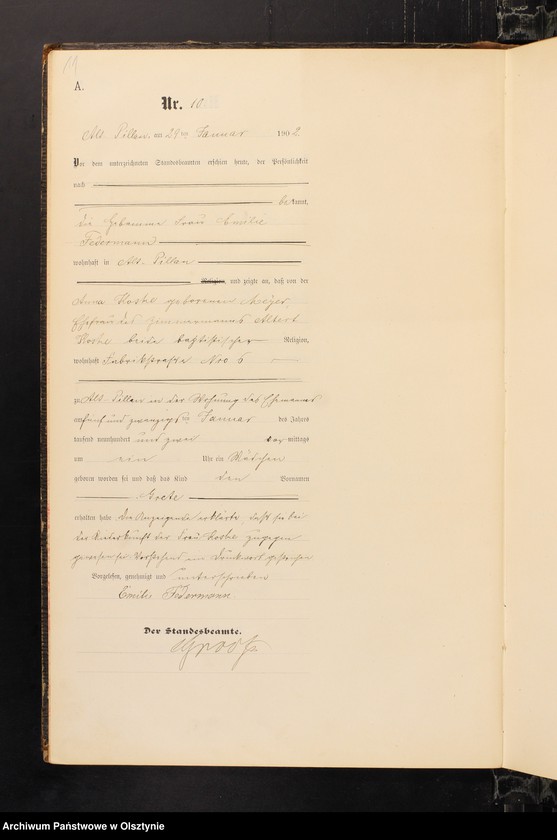 A.
Nr. 10
Alt Pillau, am 29ten Januar 1902
Vor dem unterzeichneten Standesbeamten erschien heute, der Persönlichkeit
nach
bekannt,
die Hebamme Frau Emilie
Federmann
wohnhaft in Alt-Pillau
Religion, und zeigte an, daß von der
Anna Koske geborenen Meyer,
Ehefrau des Zimmermanns Albert
Koske beide baptistischer Religion,
wohnhaft Fabrikstraße Nro 6
zu Alt-Pillau in der Wohnung des Ehemanns
am fünf und zwanzigsten Januar des Jahres
tausend neunhundert und zwei vormittags
um ein Uhr ein Mädchen
geboren worden sei und daß das Kind den Vornamen
Grete
erhalten habe. Die Anzeigende erklärte, daß sie bei
der Niederkunft der Frau Koske zugegen
gewesen sei. Vorstehend ein Druckwort gestrichen
Vorgelesen, genehmigt und unterschrieben
Emilie Federmann
Der Standesbeamte.
Archiwum Państwowe w Olsztynie